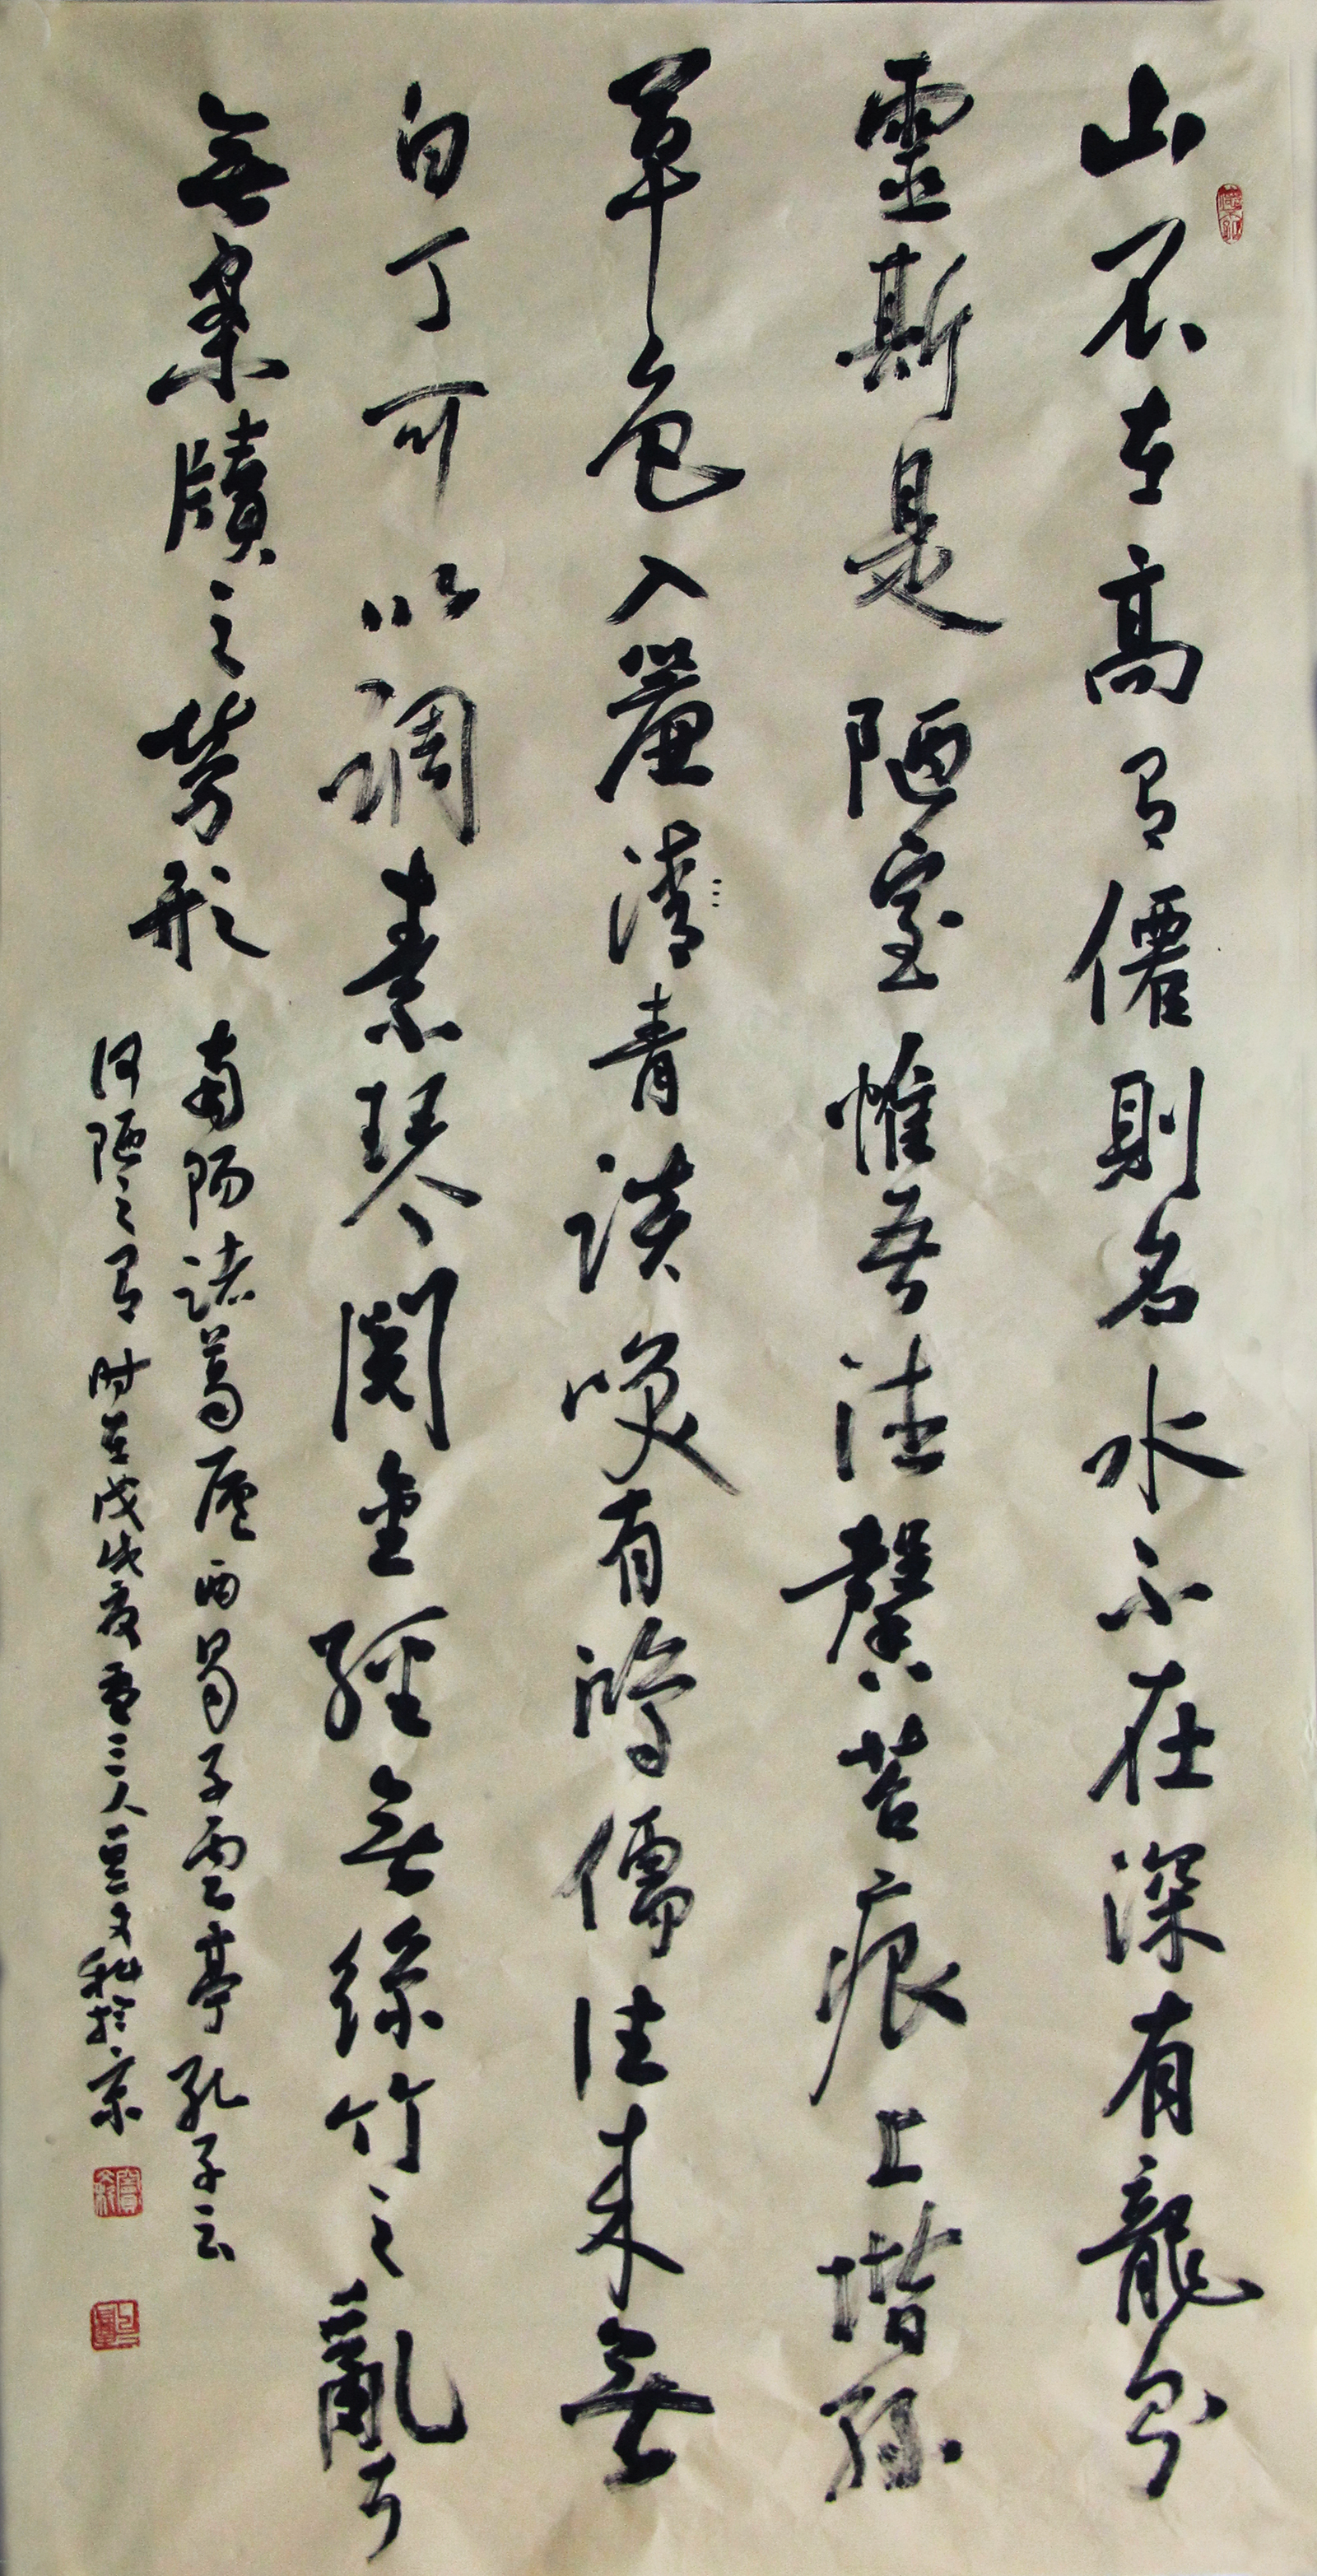 山不在高有僊則名水不在深有龍則
靈斯是陋室惟吾德馨苔痕上堦緑
草色入簾清青談笑有鴻儒往来無
白丁可以調素琴閲金經無絲竹之亂耳
無案牘之勞形
南陽諸葛廬西蜀子雲亭孔子云
何陋之有时在戊戌夏三人豆文科於京